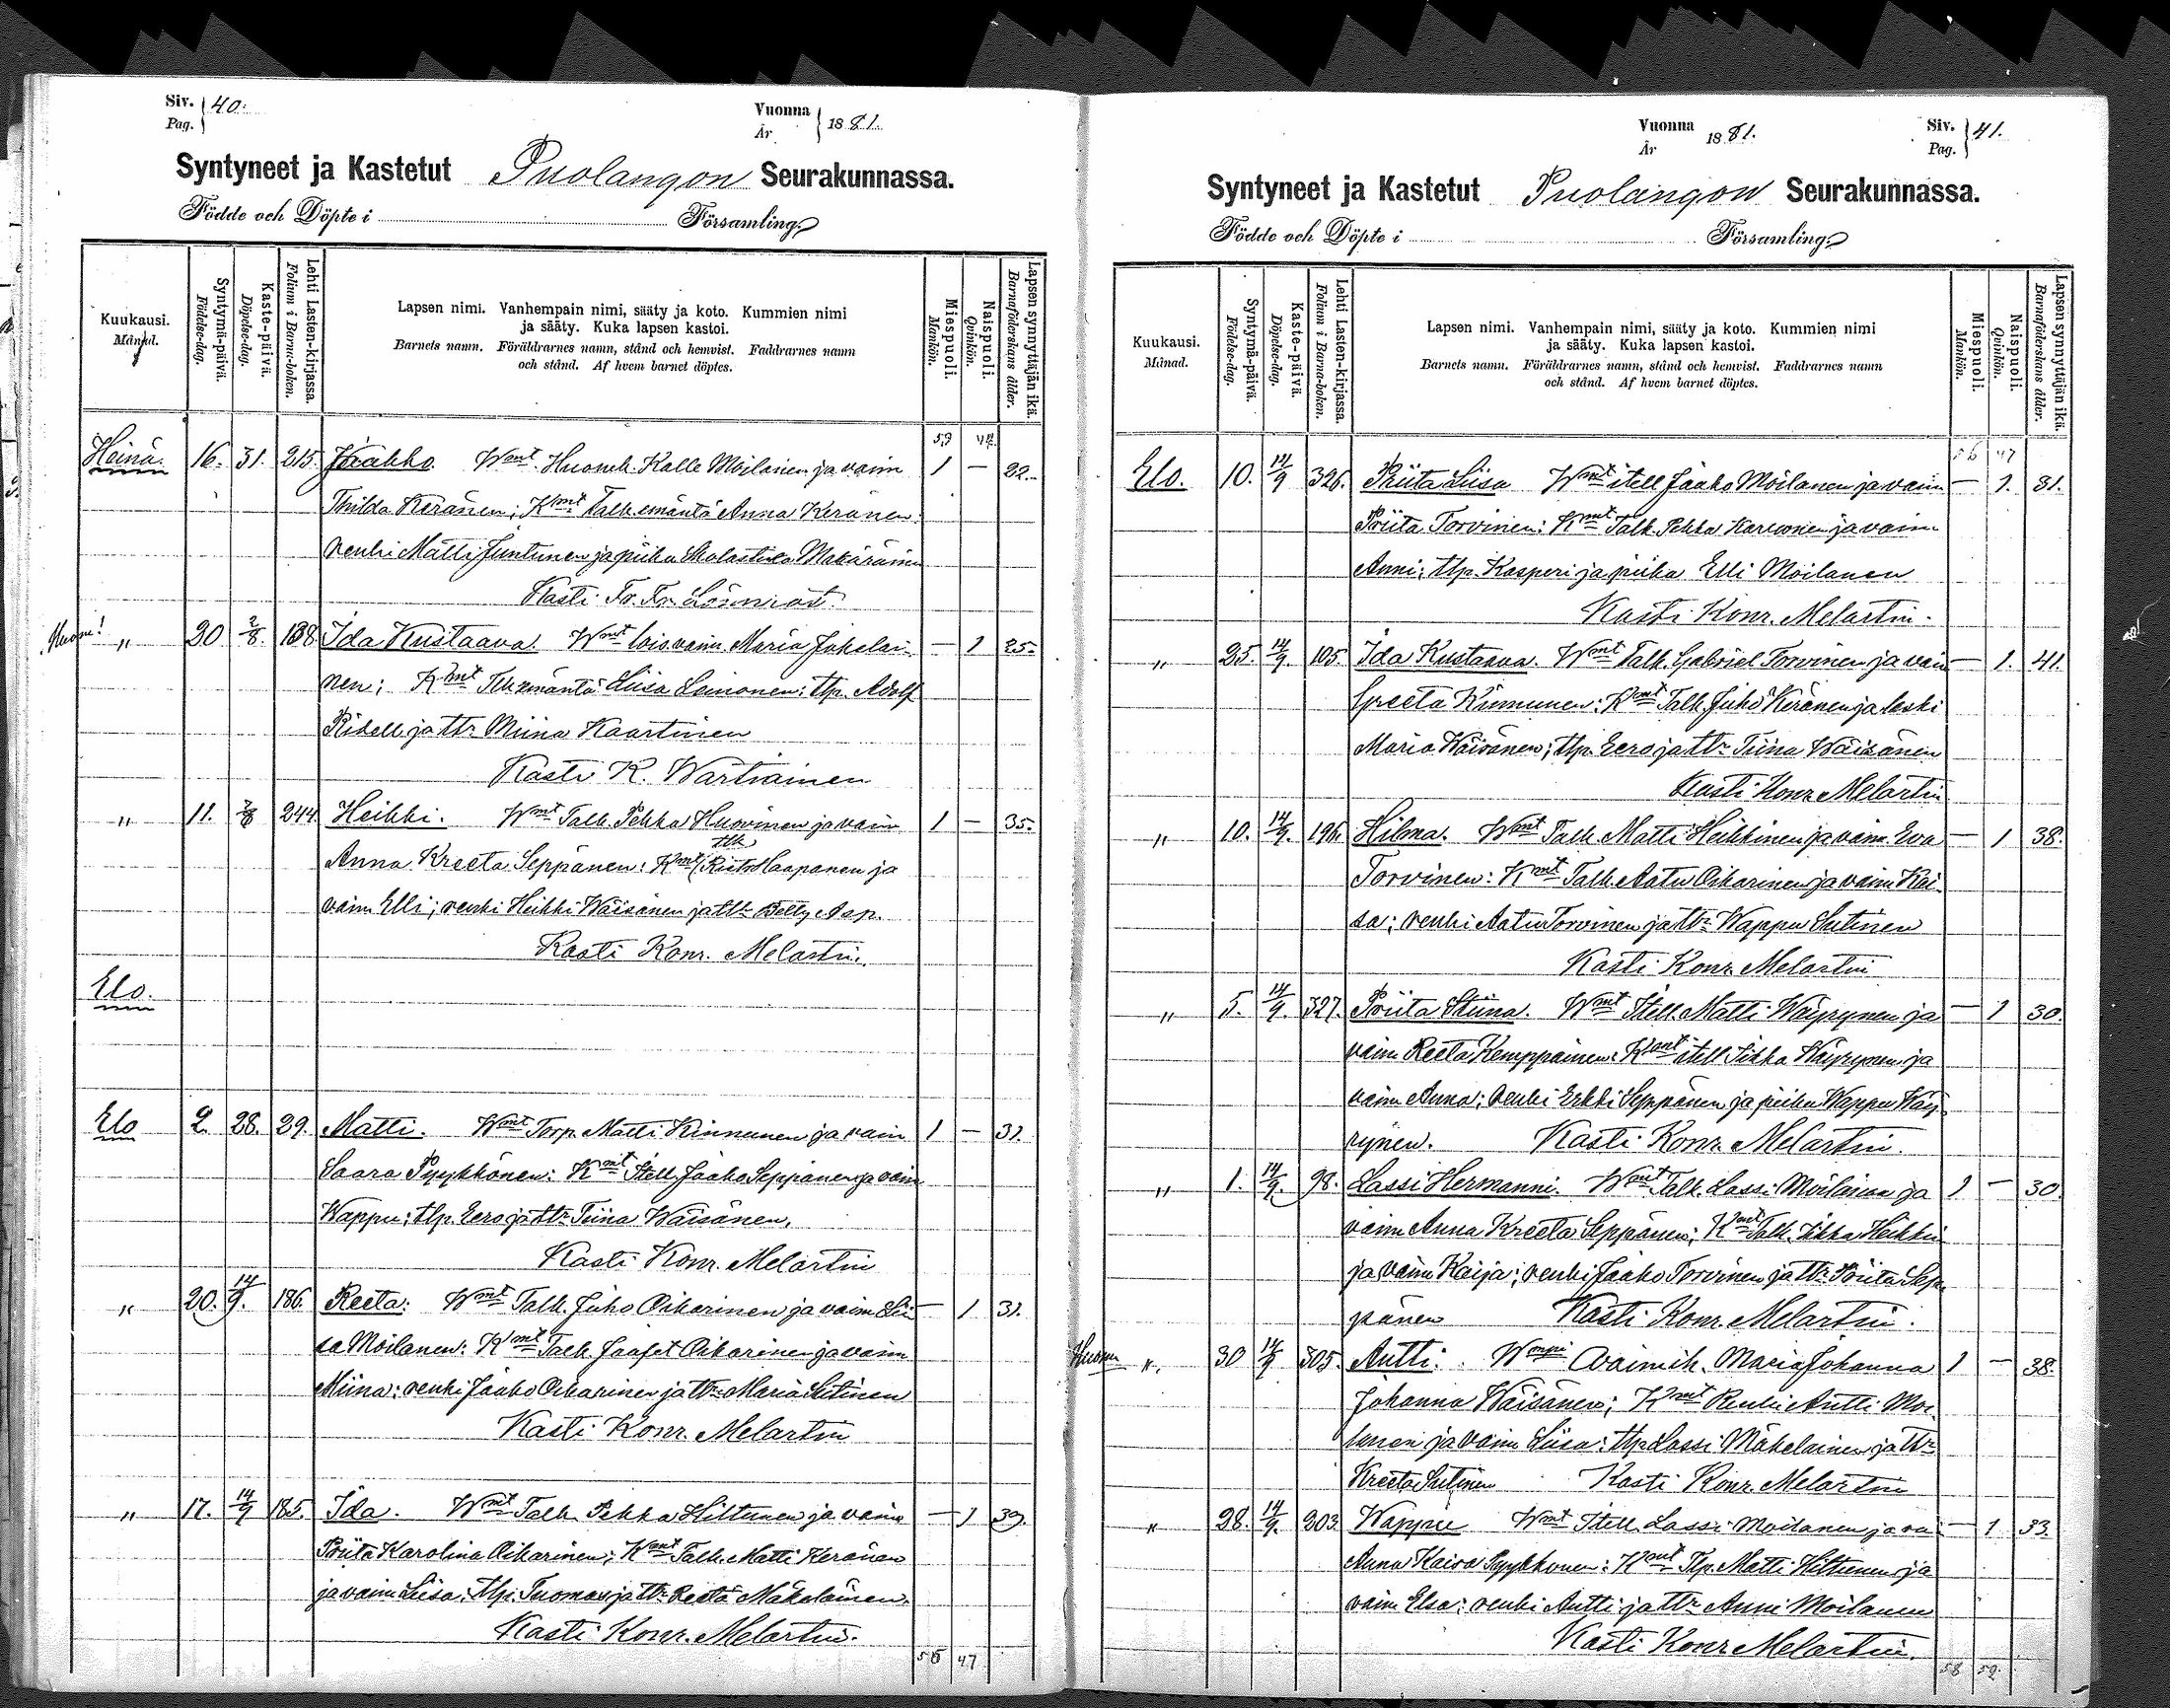 Siv. Pag. 40.
Vuonna År 1881.
Syntyneet ja Kastetut Puolangon Seurakunnassa.
Födde och Döpte i Församling.
Kuukausi. Månad.
Syntymä-päivä. Födelse-dag.
Kaste-päivä. Döpelse-dag.
Lehti Lasten-kirjassa. Folium i Barna-boken.
Lapsen nimi. Vanhempain nimi, sääty ja koto. Kummien nimi
ja sääty. Kuka lapsen kastoi.
Barnets namn. Föräldrarnes namn, stånd och hemvist. Faddrarnes namn
och stånd. Af hvem barnet döptes.
Miespuoli. Mankön.
Naispuoli. Qvinkön.
Lapsen synnyttäjän ikä. Barnaföderskans ålder.
Heinä. 16. 31. 215. Jaakko. Wmt Huonek. Kalle Moilanen ja vaim 1 — 22.
Thilda Keränen; Kmt Talk. emäntä Anna Keränen
renki Matti Juntunen ja piika Skolastika Makäräinen
Kasti Fr. Fr. Lönnrot.
" 20 2/8. 138. Ida Kustaava. Wmt lois. vaim. Maria Jokelai- — 1 25.
nen; Kmt Tlk. emäntä Liisa Leinonen; tlp. Adolf
Ridell ja ttr Miina Kaartinen
Kasti K. Wartiainen
" 11. 7/8 244. Heikki. Wmt Talk. Pekka Huovinen ja vaim 1 — 35.
Anna Kreeta Seppänen: Kmt Tlk Risto Haapanen ja
vaim. Elli; renki Heikki Wäisänen ja ttr Betty Asp.
Kasti Konr. Melartin.
Elo.
Elo 2. 28. 29. Matti. Wmt Torp. Matti Kinnunen ja vaim 1 — 31.
Saara Pyykkönen: Kmt Itell. Jaako Seppänen ja vaim
Wappu; tlp. Eero ja ttr Tiina Wäisänen.
Kasti Konr. Melartin
" 20. 14/9. 186. Reeta: Wmt Talk. Juho Oikarinen ja vaim Lii- — 1 31.
sa Moilanen: Kmt Talk. Jaafet Oikarinen ja vaim
Miina; renki Jaako Oikarinen ja ttr Maria Sutinen
Kasti Konr. Melartin
" 17. 14/9 185. Ida. Wmt Talk. Pekka Hiltunen ja vaim — 1 39.
Priita Karolina Oikarinen; Kmt Talk. Matti Keränen
ja vaim Liisa; tlp. Tuomas ja ttr Reeta Mäkeläinen.
Kasti Konr. Melartin.
47
Vuonna År 1881.
Siv. Pag. 41.
Syntyneet ja Kastetut Puolangon Seurakunnassa.
Födde och Döpte i Församling.
Kuukausi. Månad.
Syntymä-päivä. Födelse-dag.
Kaste-päivä. Döpelse-dag.
Lehti Lasten-kirjassa. Folium i Barna-boken.
Lapsen nimi. Vanhempain nimi, sääty ja koto. Kummien nimi
ja sääty. Kuka lapsen kastoi.
Barnets namn. Föräldrarnes namn, stånd och hemvist. Faddrarnes namn
och stånd. Af hvem barnet döptes.
Miespuoli. Mankön.
Naispuoli. Qvinkön.
Lapsen synnyttäjän ikä. Barnaföderskans ålder.
56 47
Elo. 10. 14/9 326. Priita Liisa Wmt itell Jaako Moilanen ja vaim — 1. 31.
Priita Torvinen: Kmt Talk. Pekka Karvonen ja vaim
Anni; tlp. Kasperi ja piika Elli Moilanen
Kasti Konr. Melartin.
" 25. 14/9. 105. Ida Kustaava. Wmt Talk. Gabriel Torvinen ja vaim — 1. 41.
Greeta Kinnunen: Kmt Talk. Juho Keränen ja leski
Maria Wäisänen; tlp. Eero ja ttr Tiina Wäisänen
Kasti Konr. Melartin
" 10. 14/9. 196. Hilma. Wmt Talk. Matti Heikkinen ja vaim. Eva — 1 38.
Torvinen: Kmt Talk. Aatu Oikarinen ja vaim Kai-
sa; renki Aatu Torvinen ja ttr Wappu Sutinen
Kasti Konr. Melartin
" 5. 14/9. 327. Priita Stiina. Wmt Itell. Matti Wäyrynen ja — 1 30.
vaim Reeta Kemppainen: Kmt itell Iikka Wäyrynen ja
vaim Anna; renki Erkki Seppänen ja piika Wappu Wäy-
rynen. Kasti Konr. Melartin.
" 1. 14/9. 98. Lassi Hermanni. Wmt Talk. Lassi Moilanen ja 1 — 30.
vaim Anna Kreeta Seppänen; Kmt Talk. Iikka Heikkin
ja vaim Kaija; renki Jaako Torvinen ja ttr Priita Sep-
pänen Kasti Konr. Melartin.
". 30 14/9 305. Antti. Wmpi Avaimih. Maria Johanna 1 — 38.
Johanna Wäisänen; Kmt Renki Antti Moi-
lanen ja vaim Liisa: tlp. Lassi Mäkeläinen ja ttr
Kreeta Sutinen Kasti Konr. Melartin
" 28. 14/9. 203. Wappu Wmt Itell. Lassi Moilanen ja va — 1 33.
Anna Kaisa Pyykkonen: Kmt Tlp. Matti Hiltunen ja
vaim Elsa; renki Antti ja ttr Anni Moilanen
Kasti Konr Melartin.
58 52.